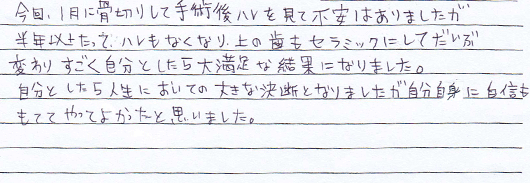 今回、1月に骨切りして手術後ハレを見て不安はありましたが
半年以上たって、ハレもなくなり、上の歯もセラミックにしてだいぶ
変わりすごく自分としたら大満足な結果になりました。
自分としたら人生においての大きな決断となりましたが自分自身に自信も
もててやってよかったと思いました。